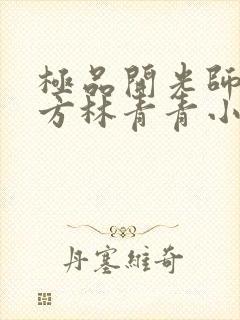 極品開光師
方林青青小
丹塞維奇